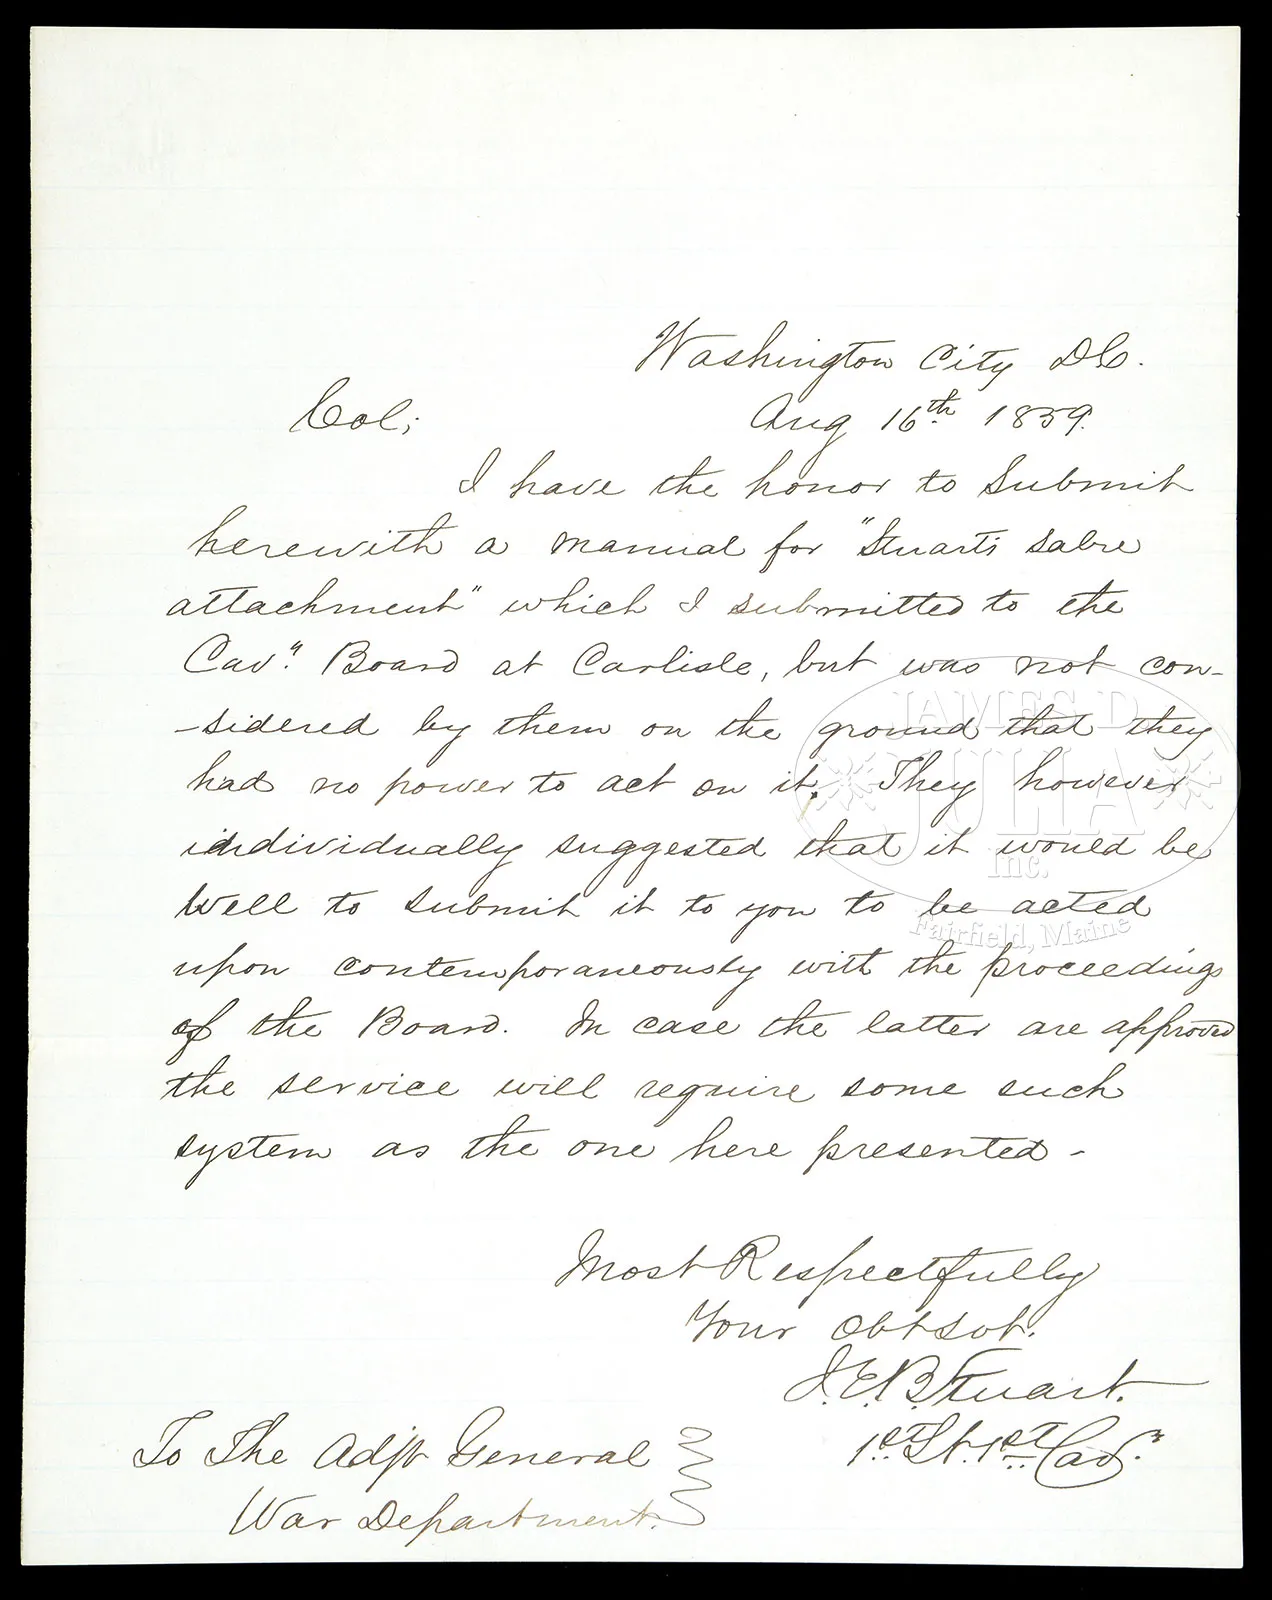 Washington City DC.
Col; Aug 16th 1859.
I have the honor to submit
herewith a manual for "Stuart's sabre
attachment" which I submitted to the
Cavy. Board at Carlisle, but was not con-
-sidered by them on the ground that they
had no power to act on it. They however
individually suggested that it would be
well to submit it to you to be acted
upon contemporaneously with the proceedings
of the Board. In case the latter are approved
the service will require some such
system as the one here presented -
Most Respectfully
Your Obt Svt.
J.E.B. Stuart.
1st Lt. 1st Cavy.
To The Adjt General
War Department.
JAMES D.
JULIA
Inc.
Fairfield, Maine